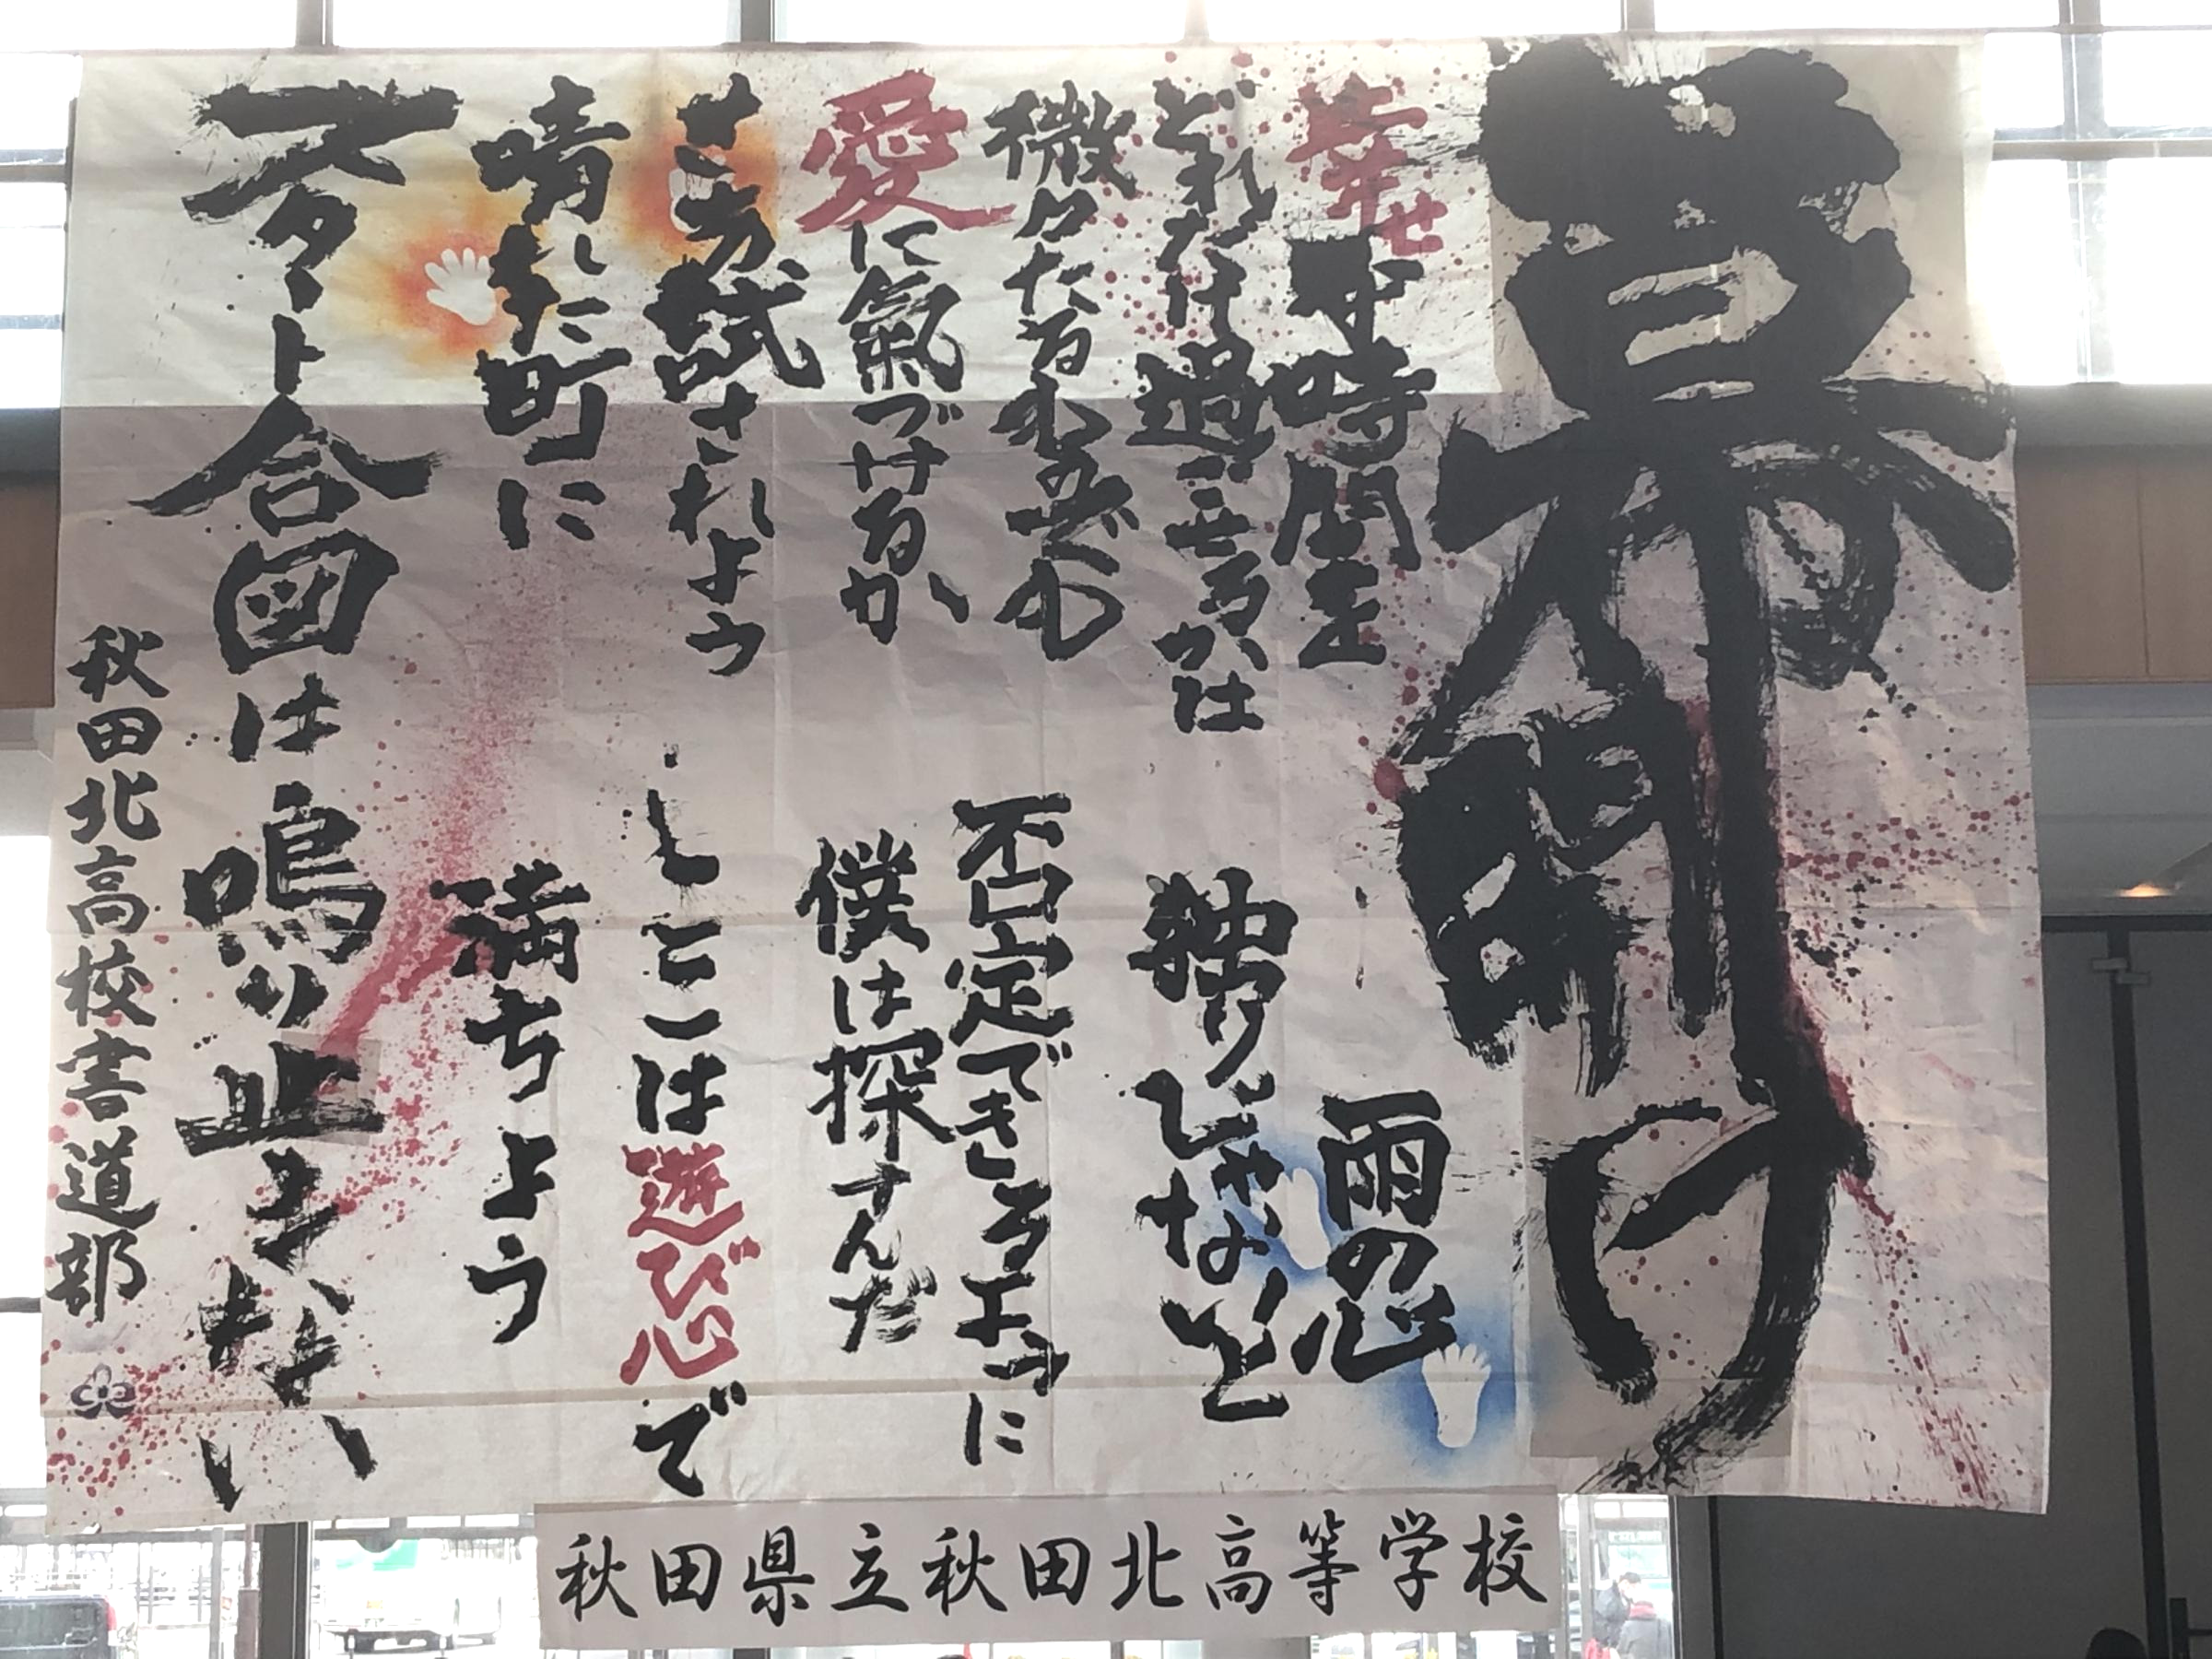 幕開け
幸せな時間を
どれだけ過ごせるかは
微々たるものでも
愛に氣づけるか
さあ試されよう
晴れた町に
スタート合図は鳴り止まない
雨の心
独りじゃないと
否定できるように
僕は探すんだ
ここは遊び心で
満ちよう
秋田北高校書道部
秋田県立秋田北高等学校